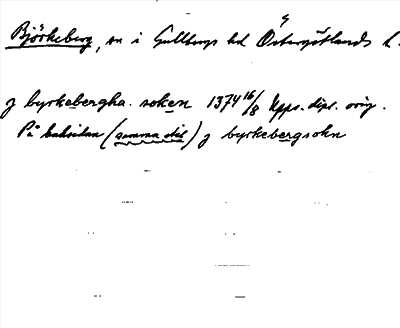 Björkeberg, sn i Gullbergs hd Östergötlands l.
J byrkebergha. soken 1374 16/8 Upps. dipl. orig.
På baksidan (samma stil) J byrkebergsokn